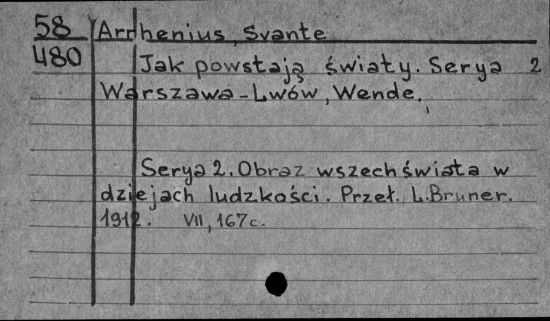 58 Arrhenius, Svante
480 Jak powstają światy. Serya 2
Warszawa-Lwów, Wende.
Serya 2. Obraz wszechświata w
dziejach ludzkości. Przeł. L. Bruner.
1912. VII, 167c.